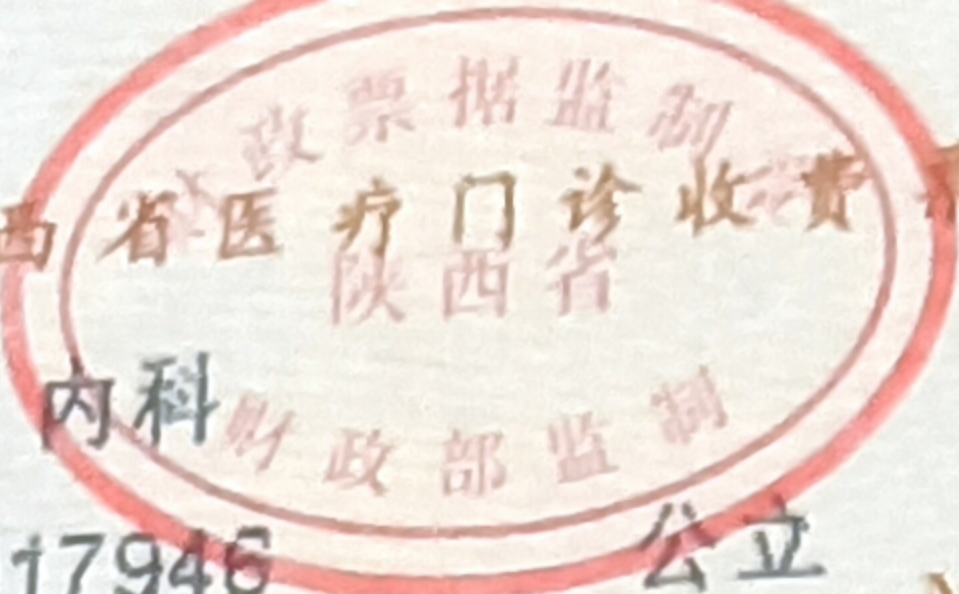 政票据监制
西省医疗门诊收费
陕西省
内科
财政部监制
17946
公立